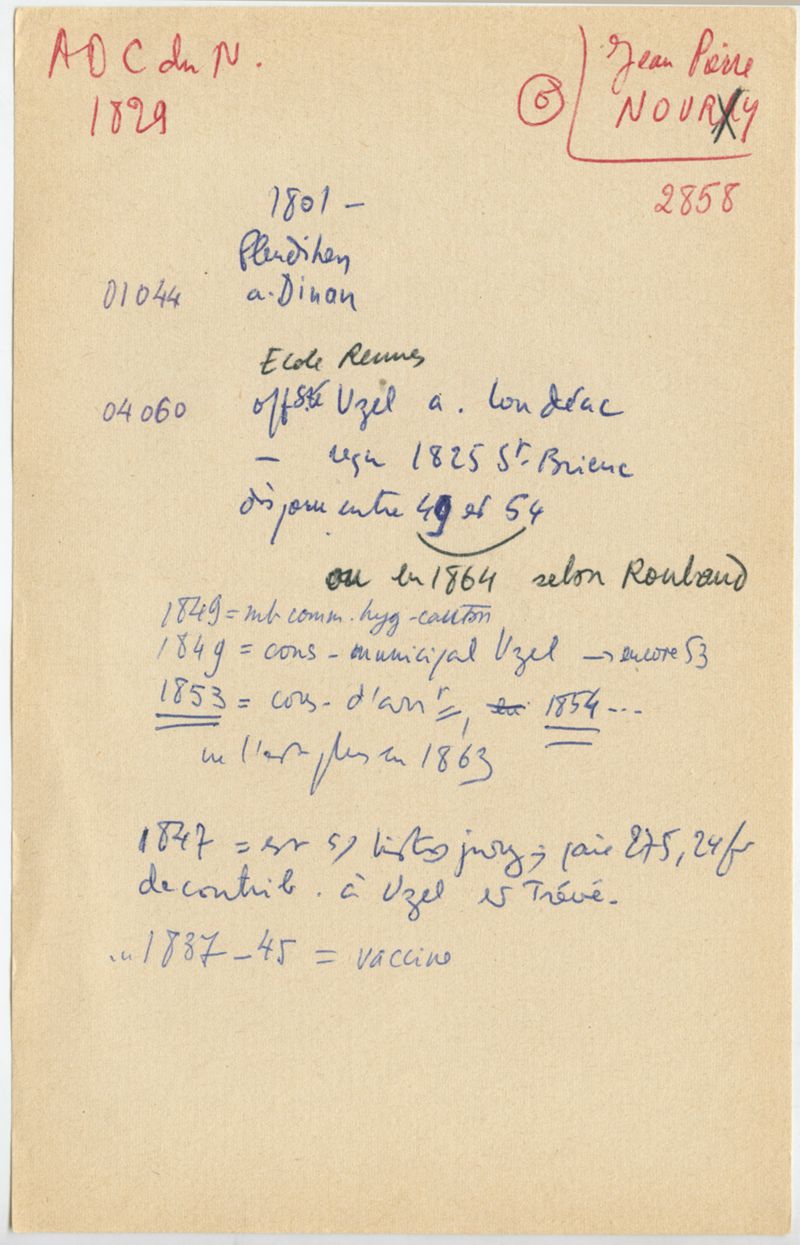 ADC du N.
1829
6
Jean Pierre
NOURRY
2858
1801 -
Pleudihen
01044 a. Dinan
Ecole Rennes
04060 off sté Uzel a. Loudéac
- reçu 1825 St. Brieuc
disparu entre 49 et 54
ou en 1864 selon Roubaud
1849 = mb comm. hyg - canton
1849 = cons - municipal Uzel → encore 53
1853 = cons - d'arrt, en 1854 ...
ne l'est plus en 1863
1847 = est s/ listes jury ; paie 275,24 fr
de contrib. à Uzel et Trévé.
1837 - 45 = vaccine